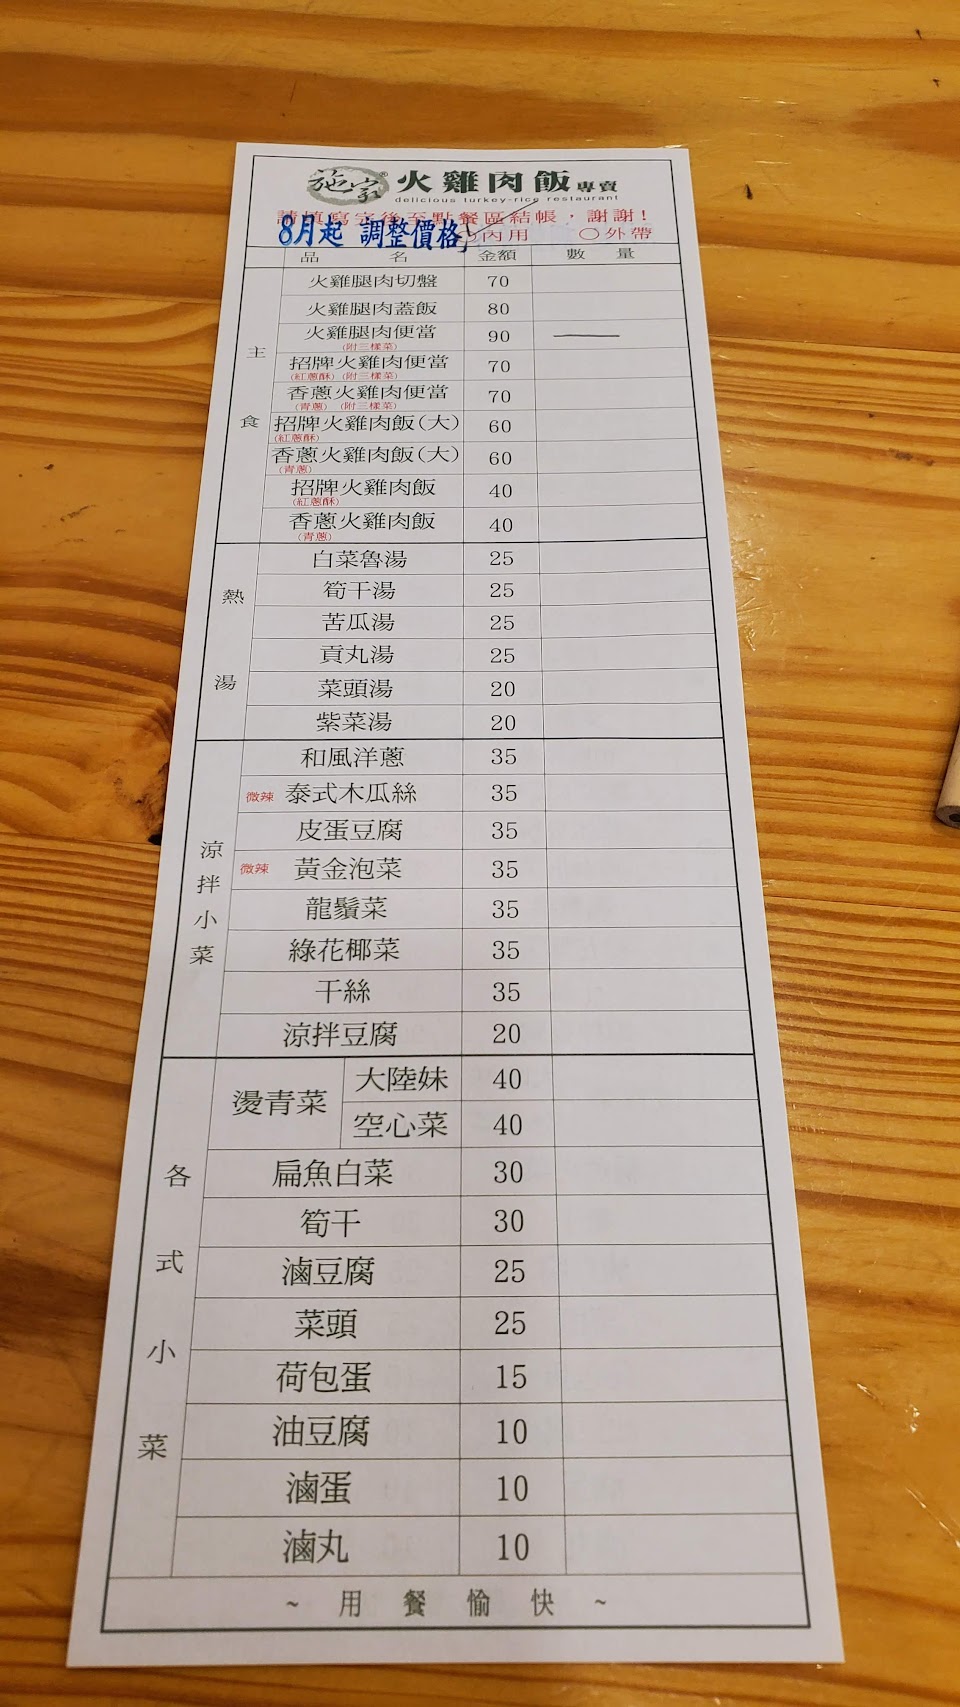 施家® 火雞肉飯 專賣
delicious turkey-rice restaurant
請填寫完後至點餐區結帳，謝謝！
8月起 調整價格 內用 ○外帶
品名 金額 數量
主食
火雞腿肉切盤 70
火雞腿肉蓋飯 80
火雞腿肉便當 90 一
(附三樣菜)
招牌火雞肉便當 70
(紅蔥酥) (附三樣菜)
香蔥火雞肉便當 70
(青蔥) (附三樣菜)
招牌火雞肉飯(大) 60
(紅蔥酥)
香蔥火雞肉飯(大) 60
(青蔥)
招牌火雞肉飯 40
(紅蔥酥)
香蔥火雞肉飯 40
(青蔥)
熱湯
白菜魯湯 25
筍干湯 25
苦瓜湯 25
貢丸湯 25
菜頭湯 20
紫菜湯 20
涼拌小菜
和風洋蔥 35
微辣 泰式木瓜絲 35
皮蛋豆腐 35
微辣 黃金泡菜 35
龍鬚菜 35
綠花椰菜 35
干絲 35
涼拌豆腐 20
各式小菜
燙青菜 大陸妹 40
空心菜 40
扁魚白菜 30
筍干 30
滷豆腐 25
菜頭 25
荷包蛋 15
油豆腐 10
滷蛋 10
滷丸 10
~ 用餐愉快 ~